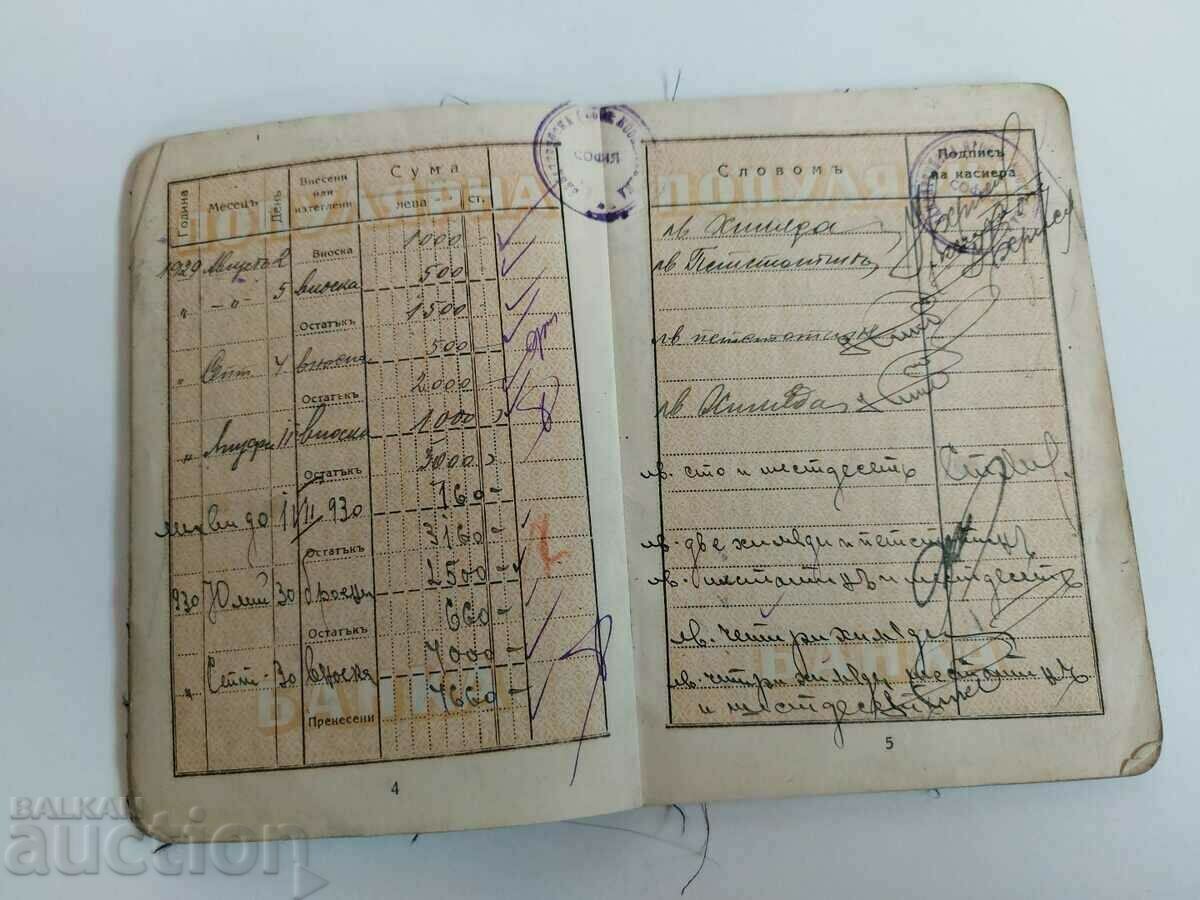 СОФИЯ
Година Месецъ День Внесени или изтеглени Сума лева ст.
1929 Августъ 2 Вноска 1000
" -"- 5 вноска 500
Остатъкъ 1500
" Септ 4 вноска 500
Остатъкъ 2000
" Януари 11 вноска 1000
Остатъкъ 3000
лихви до 930 160-
Остатъкъ 3160-
930 Юлий 30 2500-
Остатъкъ 660-
" Септ- 30 вноска 4000-
Пренесени 4660-
4
Словомъ Подписъ на касиера
СОФИЯ
лв Хиляда
лв Петстотинъ
лв петстотин
лв Хиляда
лв. сто и шестдесетъ
лв. две хиляди и петстотинъ
лв. шестотинъ и шестдесетъ
лв. четири хиляди
лв. четири хиляди шестотинъ
и шестдесетъ
5
BALKAN
auction